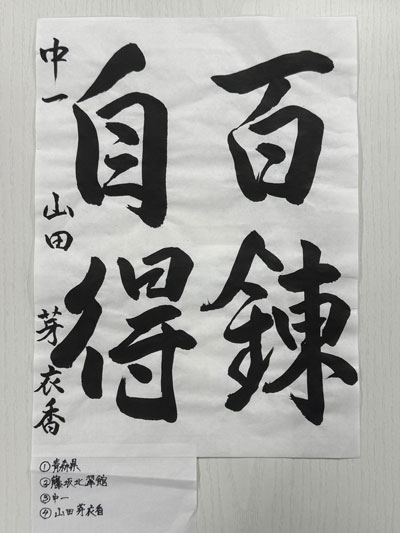 百錬
自得
中一 山田 芽衣香
①青森県
②藤坂北翠館
③中一
④山田芽衣香